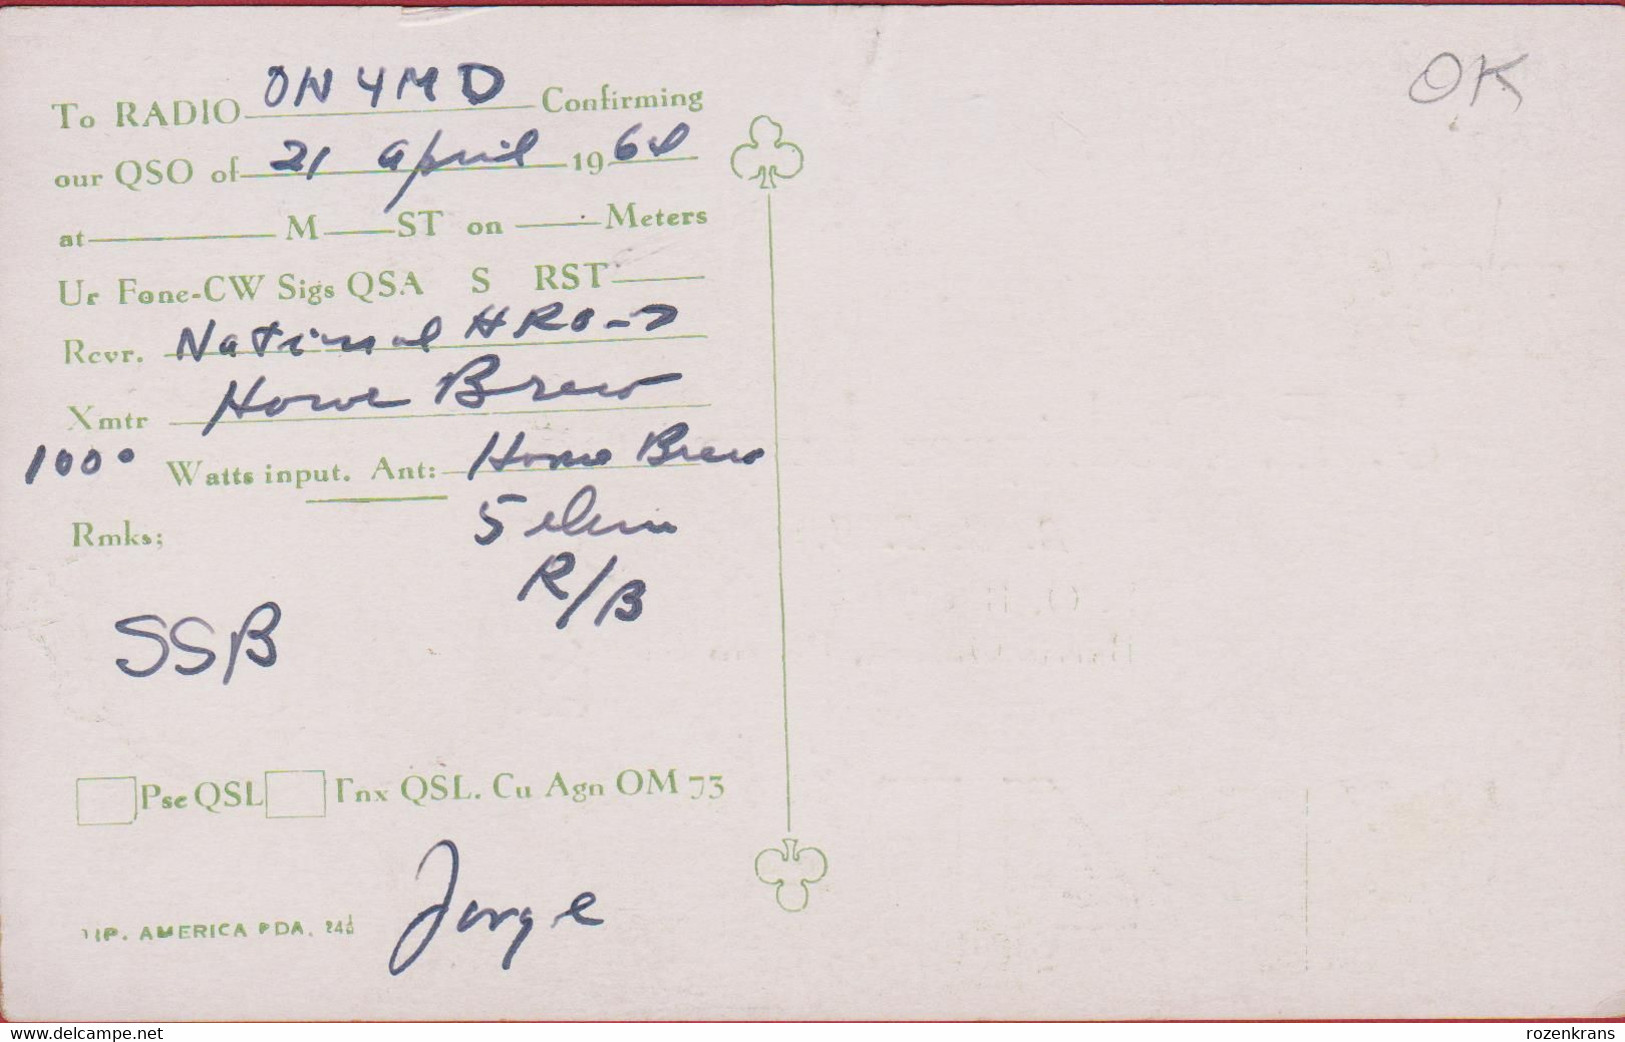 OK
To RADIO ON4MD Confirming
our QSO of 21 april 1964
at M ST on Meters
Ur Fone-CW Sigs QSA S RST
Rcvr. National HRO-7
Xmtr Home Brew
1000 Watts input. Ant: Home Brew
Rmks; 5 elem
R/B
SSB
Pse QSL Tnx QSL. Cu Agn OM 73
Jorge
TIP. AMERICA PDA.
delcampe.net
rozenkrans